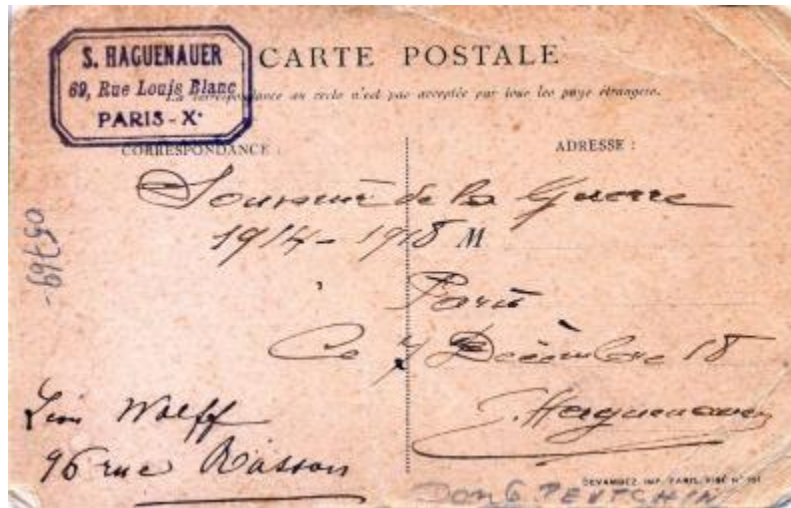 S. HAGUENAUER
69, Rue Louis Blanc
PARIS - X.
CARTE POSTALE
La correspondance au recto n'est pas acceptée par tous les pays étrangers.
CORRESPONDANCE :
ADRESSE :
Souvenir de la Guerre
1914 - 1918
M
Paris
Ce 7 Décembre 18
S. Haguenauer
Léon Wolff
96 rue
05769-
DEVAMBEZ, IMP. PARIS, VISÉ N° 191
DON G. PEVTCHIN